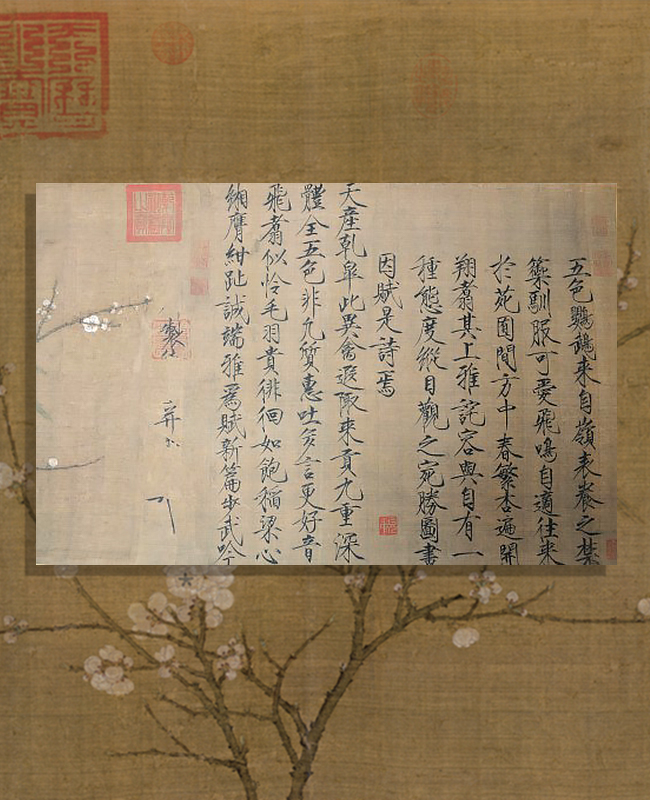 五色鸚鵡来自嶺表養之禁
籞馴服可愛飛鳴自適往来
於苑囿間方中春繁杏遍開
翔翥其上雅詫容與自有一
種態度縱目觀之宛勝圖畫
因賦是詩焉
天産乾皐此異禽遐陬来貢九重深
體全五色非凡質惠吐多言更好音
飛翥似怜毛羽貴徘徊如飽稲梁心
緗膺紺趾誠端雅爲賦新篇步武吟
製
并書